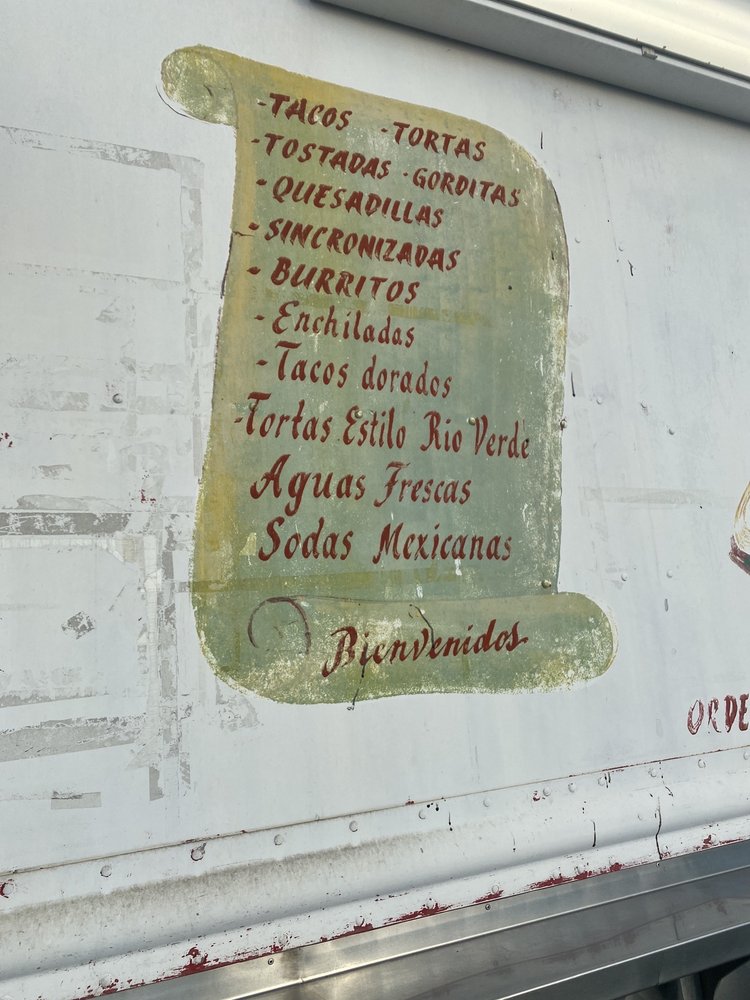 -TACOS -TORTAS
-TOSTADAS -GORDITAS
-QUESADILLAS
-SINCRONIZADAS
-BURRITOS
-Enchiladas
-Tacos dorados
-Tortas Estilo Rio Verde
Aguas Frescas
Sodas Mexicanas
Bienvenidos
ORDE